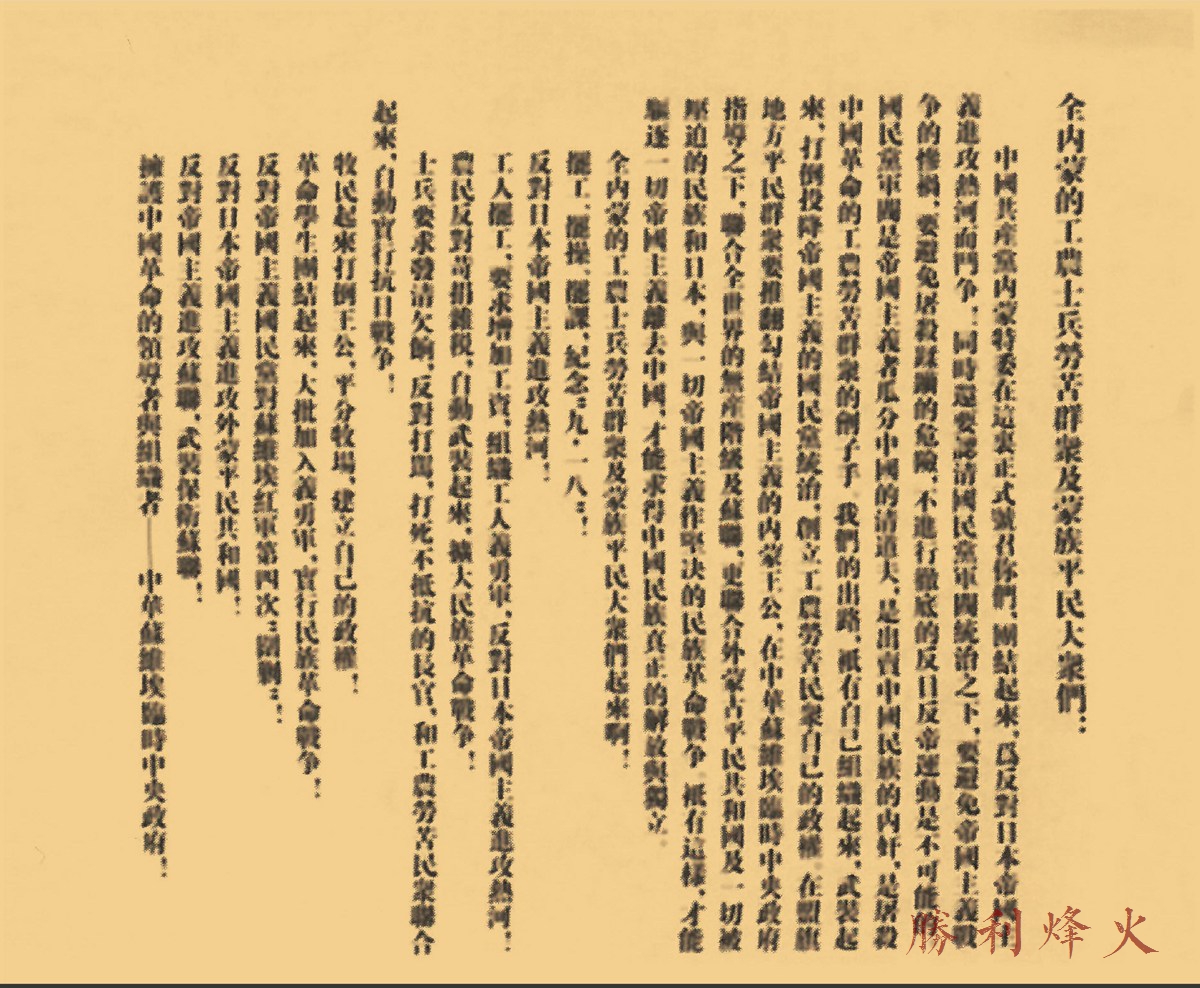 全内蒙的工農士兵勞苦群衆及蒙族平民大衆們：
中國共産黨内蒙特委在這裏正式號召你們，團結起來，爲反對日本帝國主
義進攻熱河而鬥争，同時還要認清國民黨軍閥統治之下，要避免帝國主義戰
争的慘禍，要避免屠殺蹂躪的危險，不進行徹底的反日反帝運動是不可能的
國民黨軍閥是帝國主義者瓜分中國的清道夫，是出賣中國民族的内奸，是屠殺
中國革命的工農勞苦群衆的劊子手。我們的出路，衹有自己組織起來，武裝起
來，打倒投降帝國主義的國民黨統治，創立工農勞苦民衆自己的政權。在盟旗
地方平民群衆要推翻勾結帝國主義的内蒙王公，在中華蘇維埃臨時中央政府
指導之下，聯合全世界的無産階級及蘇聯，更聯合外蒙古平民共和國及一切被
壓迫的民族和日本，與一切帝國主義作堅决的民族革命戰争。衹有這樣，才能
驅逐一切帝國主義離去中國，才能求得中國民族真正的解放與獨立。
全内蒙的工農士兵勞苦群衆及蒙族平民大衆們起來啊！
擺工、擺操、擺課，紀念“九·一八”！
反對日本帝國主義進攻熱河！
工人擺工，要求增加工資，組織工人義勇軍，反對日本帝國主義進攻熱河！
農民反對苛捐雜税，自動武裝起來，擴大民族革命戰争！
士兵要求發清欠餉，反對打駡，打死不抵抗的長官，和工農勞苦民衆聯合
起來，自動實行抗日戰争！
牧民起來打倒王公，平分牧場，建立自己的政權！
革命學生團結起來，大批加入義勇軍，實行民族革命戰争！
反對帝國主義國民黨對蘇維埃紅軍第四次“圍剿”！
反對日本帝國主義進攻外蒙平民共和國！
反對帝國主義進攻蘇聯，武裝保衛蘇聯！
擁護中國革命的領導者與組織者——中華蘇維埃臨時中央政府！
勝利烽火